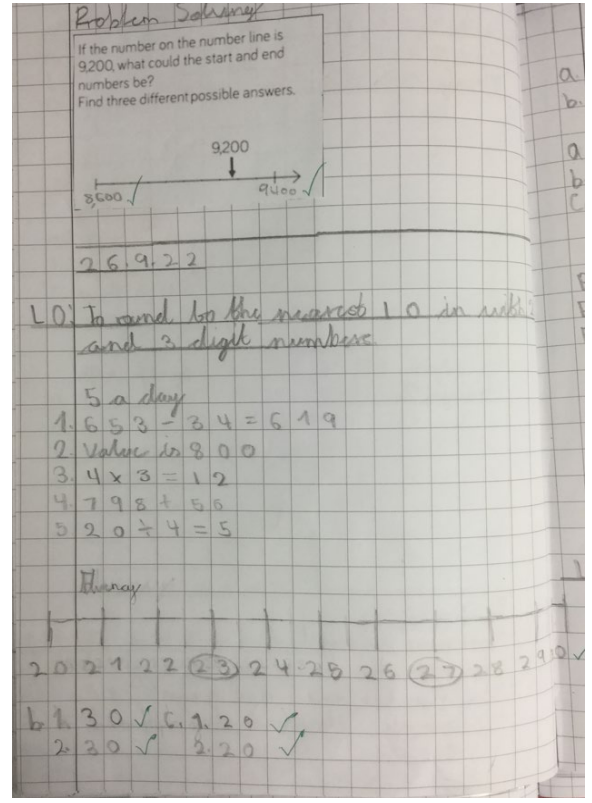 Problem Solving
If the number on the number line is
9,200, what could the start and end
numbers be?
Find three different possible answers.
9,200
8,600 ✓ 9400 ✓
26.9.22
LO: To round to the nearest 10 in with 2
and 3 digit numbers
5 a day
1. 653 - 34 = 619
2. Value is 800
3. 4 x 3 = 12
4. 798 + 56
5 20 ÷ 4 = 5
Fluency
20 21 22 23 24 25 26 27 28 29 ✓
b 1. 30 ✓ c. 1. 20 ✓
2. 30 ✓ 2. 20 ✓
a.
b.
a
b
c